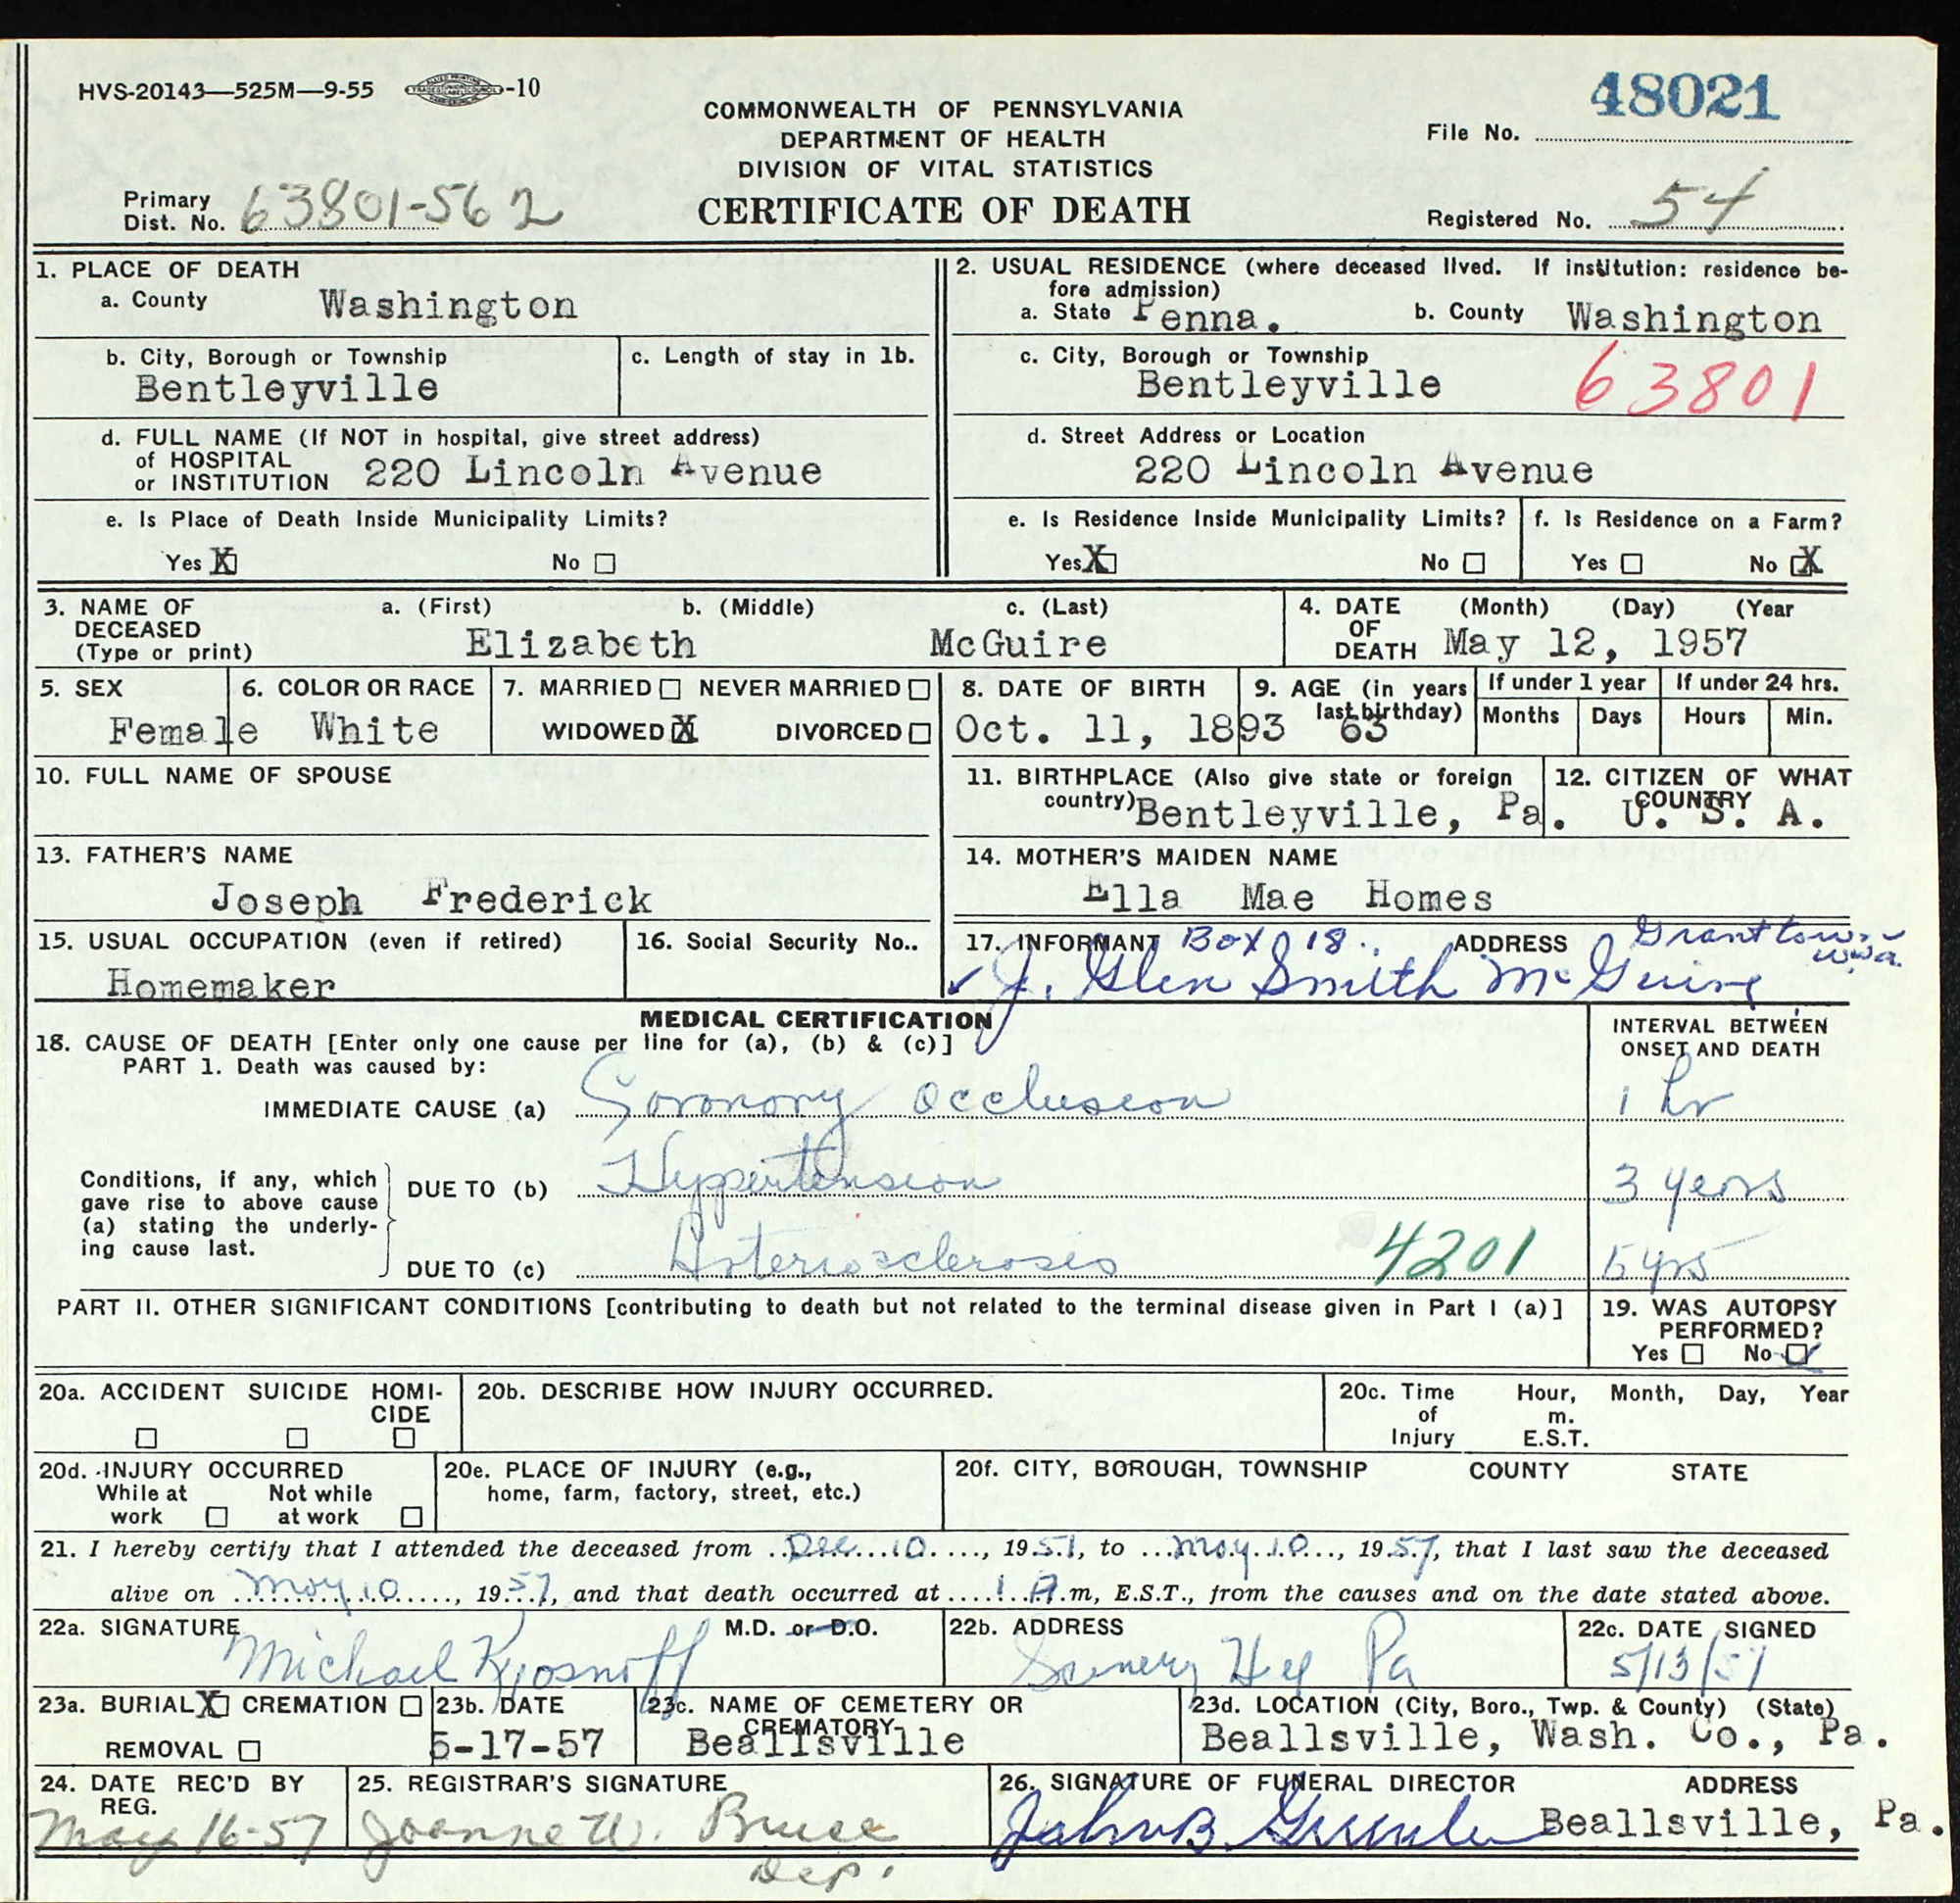 HVS-20143—525M—9-55 -10
48021
COMMONWEALTH OF PENNSYLVANIA
DEPARTMENT OF HEALTH
DIVISION OF VITAL STATISTICS
CERTIFICATE OF DEATH
File No.
Primary
Dist. No. 63801-562
Registered No. 54
1. PLACE OF DEATH
a. County Washington
2. USUAL RESIDENCE (where deceased lived. If institution: residence be-
fore admission)
a. State Penna. b. County Washington
b. City, Borough or Township
Bentleyville
c. Length of stay in 1b.
c. City, Borough or Township
Bentleyville 63801
d. FULL NAME (If NOT in hospital, give street address)
of HOSPITAL
or INSTITUTION 220 Lincoln Avenue
d. Street Address or Location
220 Lincoln Avenue
e. Is Place of Death Inside Municipality Limits?
Yes X No
e. Is Residence Inside Municipality Limits?
Yes X No
f. Is Residence on a Farm?
Yes No X
3. NAME OF
DECEASED
(Type or print)
a. (First) b. (Middle) c. (Last)
Elizabeth McGuire
4. DATE
OF
DEATH
(Month) (Day) (Year
May 12, 1957
5. SEX
Female
6. COLOR OR RACE
White
7. MARRIED NEVER MARRIED
WIDOWED X DIVORCED
8. DATE OF BIRTH
Oct. 11, 1893
9. AGE (in years
last birthday)
63
If under 1 year
Months Days
If under 24 hrs.
Hours Min.
10. FULL NAME OF SPOUSE
11. BIRTHPLACE (Also give state or foreign
country) Bentleyville, Pa.
12. CITIZEN OF WHAT
COUNTRY
U. S. A.
13. FATHER'S NAME
Joseph Frederick
14. MOTHER'S MAIDEN NAME
Ella Mae Homes
15. USUAL OCCUPATION (even if retired)
Homemaker
16. Social Security No..
17. INFORMANT Box 18. ADDRESS Granttown
W.Va.
J. Glen Smith McGuire
MEDICAL CERTIFICATION
18. CAUSE OF DEATH [Enter only one cause per line for (a), (b) & (c)]
PART 1. Death was caused by:
INTERVAL BETWEEN
ONSET AND DEATH
IMMEDIATE CAUSE (a) Coronory occlusion 1 hr
Conditions, if any, which
gave rise to above cause
(a) stating the underly-
ing cause last.
DUE TO (b) Hypertension 3 years
DUE TO (c) Arteriosclerosis 4201 5 yrs
PART II. OTHER SIGNIFICANT CONDITIONS [contributing to death but not related to the terminal disease given in Part I (a)]
19. WAS AUTOPSY
PERFORMED?
Yes No ✓
20a. ACCIDENT SUICIDE HOMI-
CIDE
20b. DESCRIBE HOW INJURY OCCURRED.
20c. Time
of
Injury
Hour, Month, Day, Year
m.
E.S.T.
20d. INJURY OCCURRED
While at Not while
work at work
20e. PLACE OF INJURY (e.g.,
home, farm, factory, street, etc.)
20f. CITY, BOROUGH, TOWNSHIP COUNTY STATE
21. I hereby certify that I attended the deceased from Dec 10, 1951, to May 10, 1957, that I last saw the deceased
alive on May 10, 1957, and that death occurred at 1 A.m, E.S.T., from the causes and on the date stated above.
22a. SIGNATURE M.D. or D.O.
Michael
22b. ADDRESS
Pa
22c. DATE SIGNED
5/13/57
23a. BURIAL X CREMATION
REMOVAL
23b. DATE
5-17-57
23c. NAME OF CEMETERY OR
CREMATORY
Beallsville
23d. LOCATION (City, Boro., Twp. & County) (State)
Beallsville, Wash. Co., Pa.
24. DATE REC'D BY
REG.
May 16-57
25. REGISTRAR'S SIGNATURE
Joanne W. Bruce
Dep.
26. SIGNATURE OF FUNERAL DIRECTOR ADDRESS
John B. Beallsville, Pa.